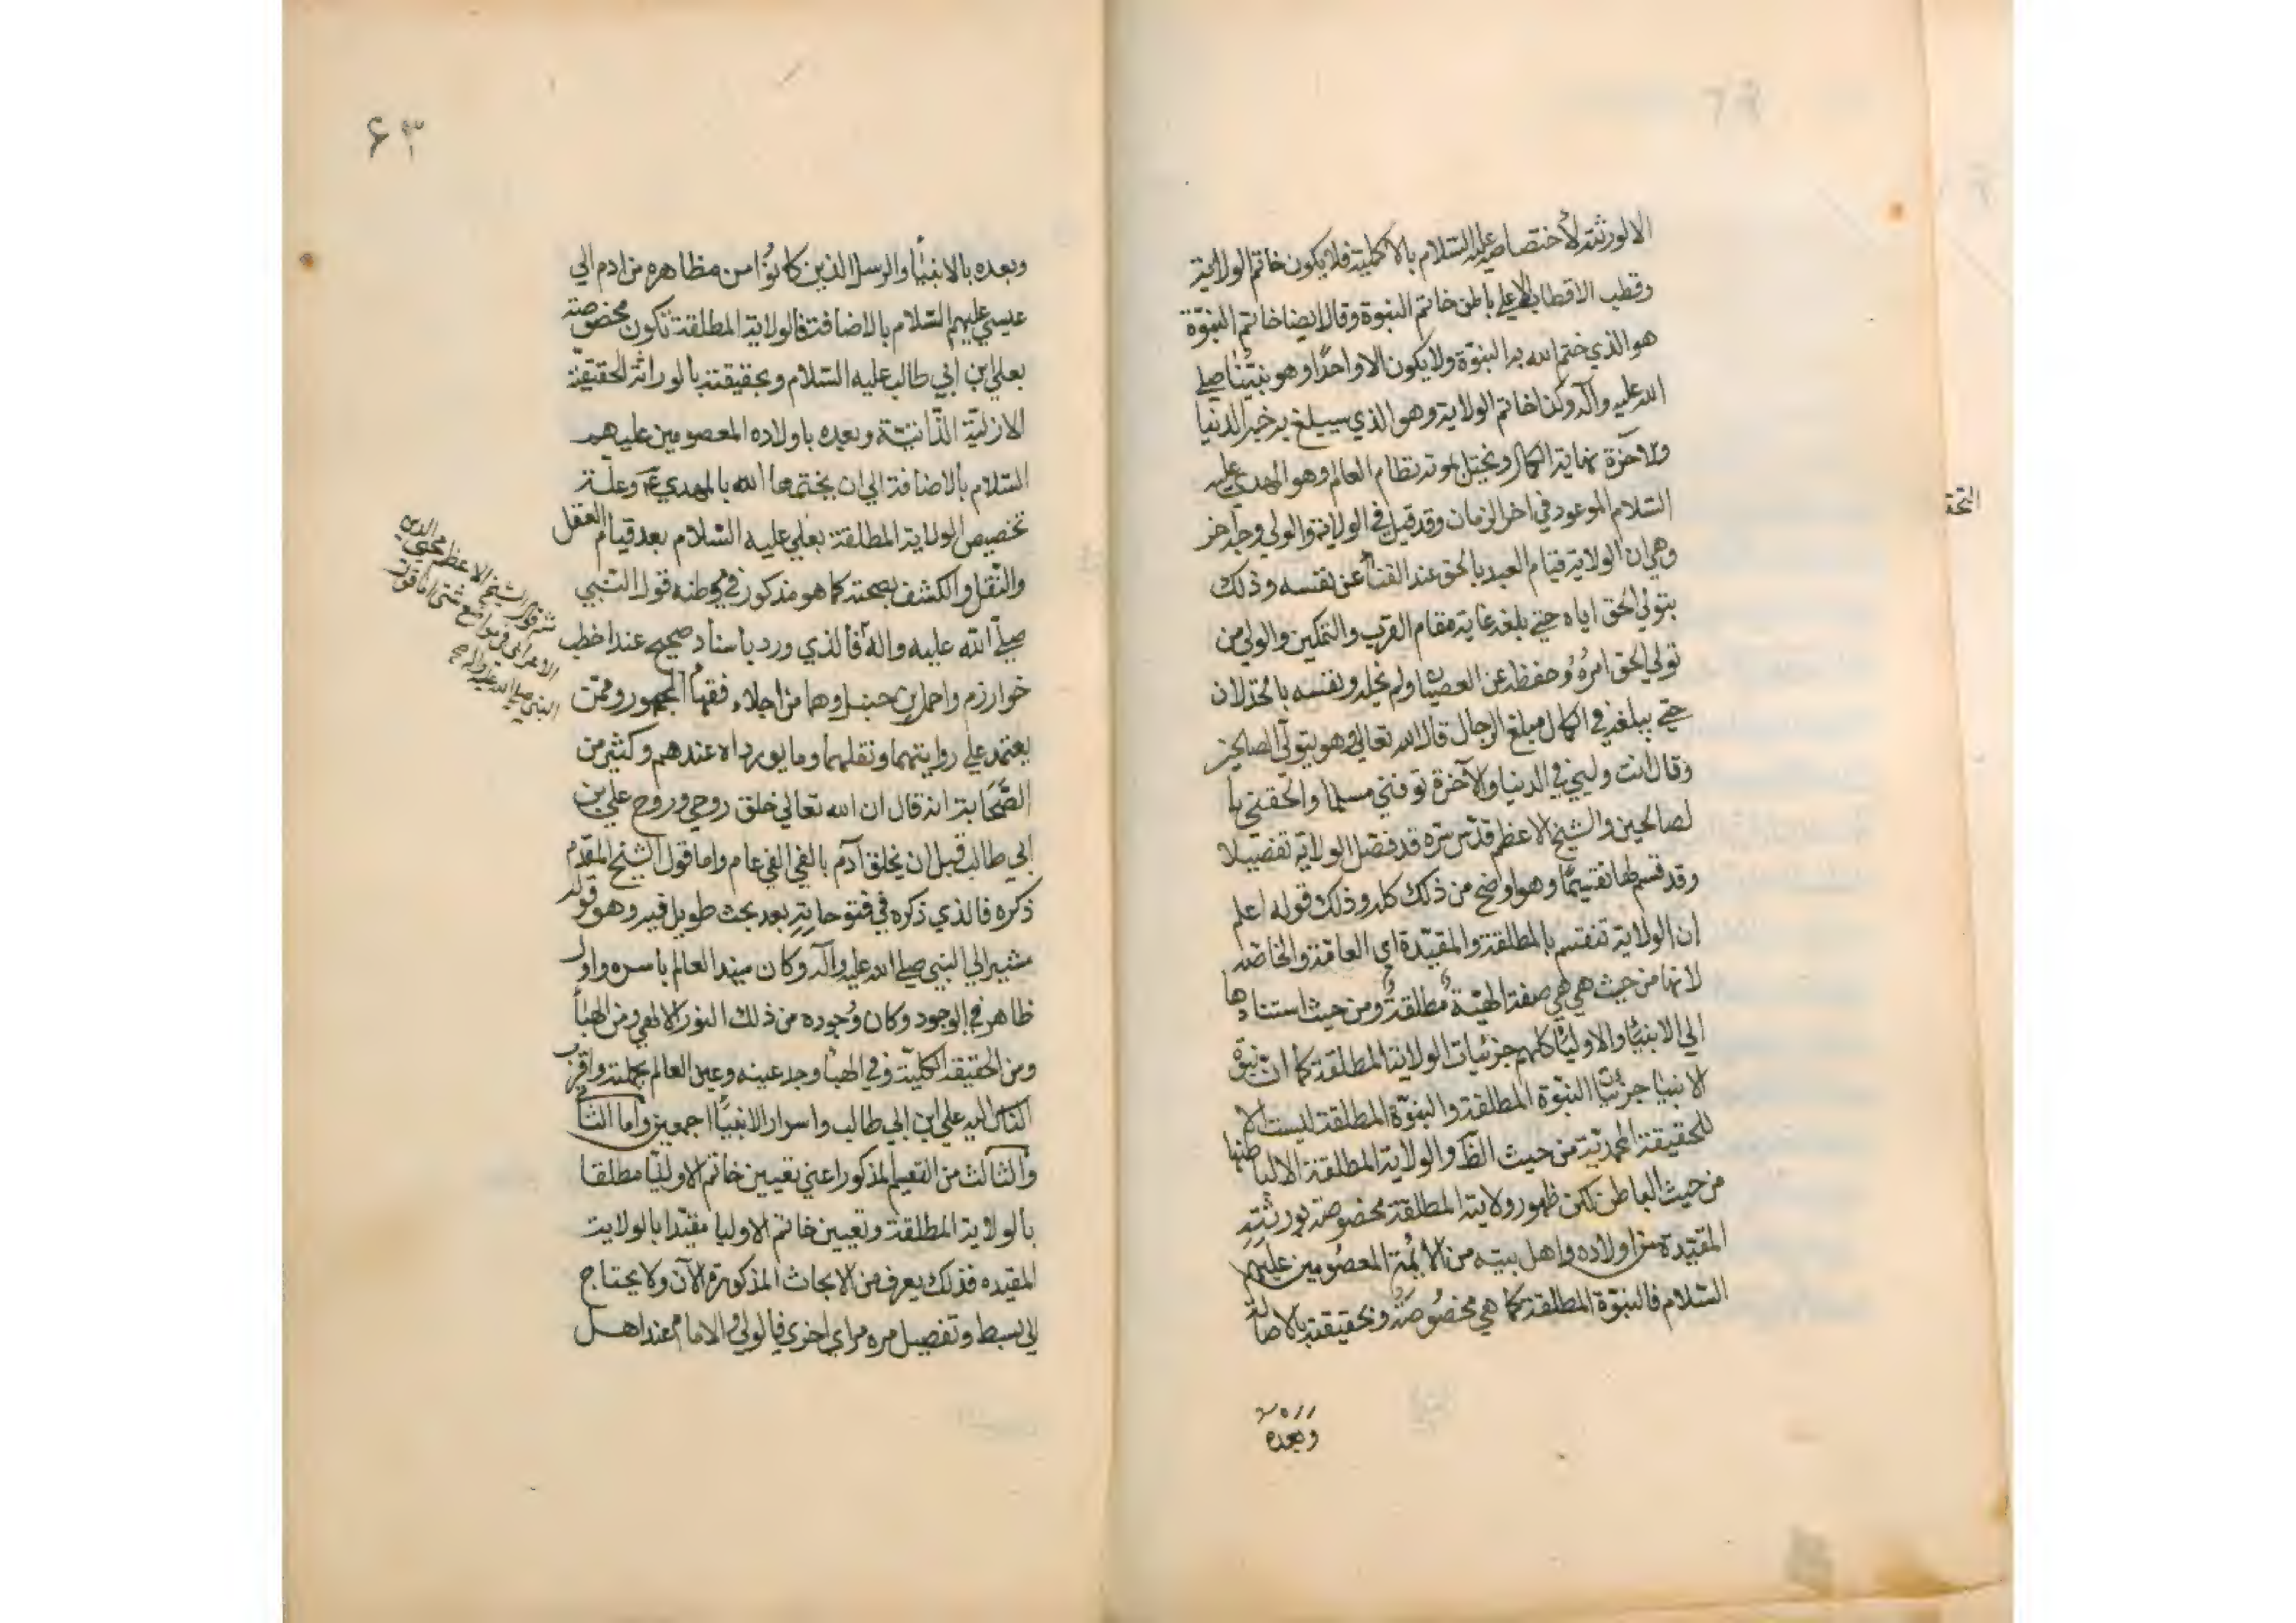 الا لورثته لأختصاصهم عليه السلام بالاكملية فلا يكون خاتم الولاية
وقطب الاقطاب الا علي باطن خاتم النبوة وقال ايضا خاتم النبوّة
هو الذي ختم الله به النبوّة ولا يكون الا واحدًا وهو نبيّنا صلي
الله عليه وآله وكذا خاتم الولاية وهو الذي سيبلغ به خير الدنيا
والآخرة نهاية الكمال ويختل بموته نظام العالم وهو المهدي عليه
السلام الموعود في اخر الزمان وقد قيل في الولاية والولي وجه آخر
وهي ان الولاية قيام العبد بالحق عند الفنأ عن نفسه وذلك
بتولي الحق اياه حتي بلغه غاية مقام القرب والتمكين والولي من
تولي الحق امره وحفظه عن العصيان ولم يخله ونفسه بالخذلان
حتي يبلغه في الكمال مبلغ الرجال قال الله تعالي وهو يتولّي الصالحين
وقال انت وليي في الدنيا والآخرة توفني مسلما والحقني با
لصالحين والشيخ الاعظم قدّس سره قد فصّل الولاية تفصيلا
وقد قسم لها تقسيمًا وهو اوضح من ذلك كله وذلك قوله اعلم
ان الولاية تنقسم بالمطلقة والمقيّدة اي العامة والخاصّه
لانها من حيث هي هي صفة الهيّة مطلقة ومن حيث استنادها
الي الانبيأ والاوليأ كلهم جزئيات الولاية المطلقة كما ان نبوة
الانبيا جزئيات النبوّة المطلقة والنبوّة المطلقة ليست الا
للحقيقة المحمديّة من حيث الظ والولاية المطلقة الا لباطنها
من حيث الباطن لكن ظهور ولاية المطلقة مخصوصة بورثته
المقيّدة من اولاده واهل بيته من الأئمة المعصومين عليهم
السلام فالنبوّة المطلقة كما هي مخصُوصَة وبحقيقته بالاصالة
وبعده
۶۳
وبعده بالانبيأ والرسل الذين كانوُا من مظاهره من ادم الي
عيسي عليهم السّلام بالاضافة فالولاية المطلقة تكون مخصوصة
بعلي ابن ابي طالب عليه السّلام وبحقيقته بالوراثة الحقيقيّة
الازليّة الذّاتيّة وبعده باولاده المعصومين عليهم
السّلام بالاضافة الي ان يختمها الله بالمهدي ع وعلّة
تخصيص الولاية المطلقة بعلي عليه السّلام بعد قيام العقل
والنّقل والكشف بصحته كما هو مذكور في موطنه قول النّبي
صلّي الله عليه واله فالذي ورد باسناد صحيح عند اخطب
خوارزم واحمد بن حنبل وهما من اجلاء فقهأ الجمهور وممّن
يعتمد علي روايتهما ونقلهما وما يورداه عندهم وكثير من
الصَّحَابة انه قال ان الله تعالي خلق روحي وروح علي بن
ابي طالب قبل ان يخلق آدم بالفي الفي عام واما قول الشيخ المقدّم
ذكره فالذي ذكره في فتوحاته بعد بحث طويل فيه وهو قوله
مشيرا الي النبي صلي الله عليه وآله وكان مبتدا العالم باسره واول
ظاهر في الوجود وكان وُجوده من ذلك النور الالهي ومن الهبأ
ومن الحقيقة الكليّة وفي الهبأ وجد عينه وعين العالم بجملته واقرب
الناس اليه علي ابن ابي طالب واسرار الانبيأ اجمعين واما الثاني
والثالث من التقسيم المذكور اعني تعيين خاتم الاوليا مطلقا
بالولاية المطلقة وتعيين خاتم الاوليا مقيّدا بالولاية
المقيده فذلك يعرف من الابحاث المذكورة الآن ولا يحتاج
الي بسط وتفصيل مره مراي اخري فالولي والامام عند اهل
ثم قول الشيخ الاعظم محيي الدين
الاعرابي في مواضع شتي اما قول
النبي صلي الله عليه واله